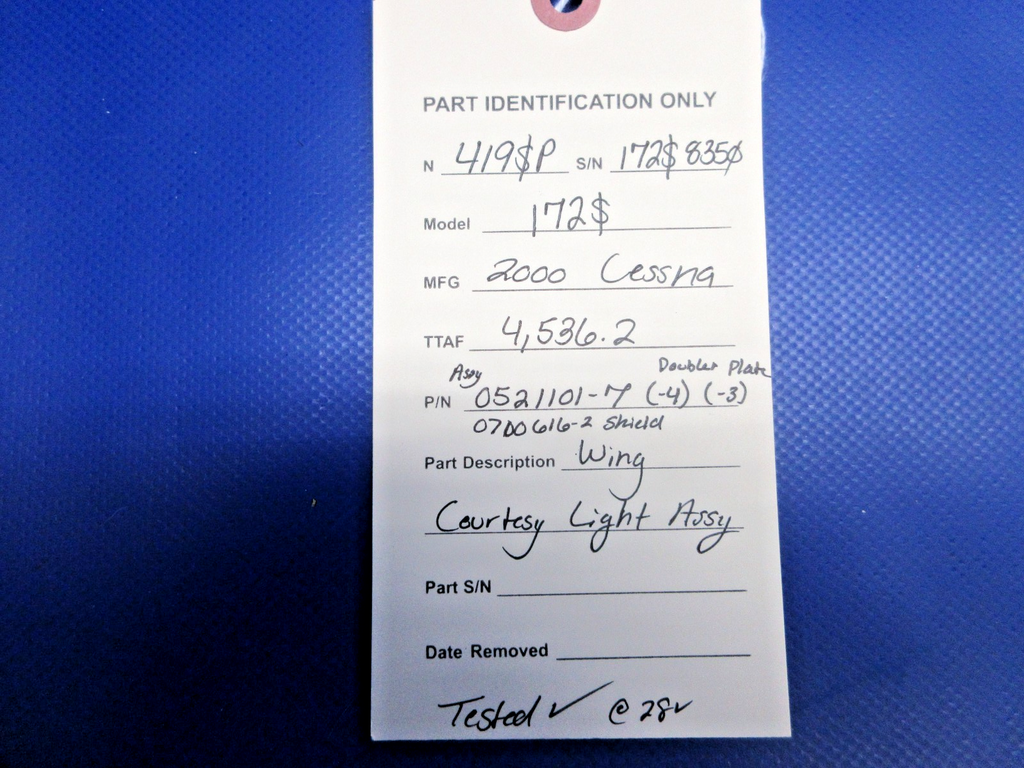 PART IDENTIFICATION ONLY
N 419$P S/N 172$ 8350
Model 172$
MFG 2000 Cessna
TTAF 4,536.2
Assy Doubler Plate
P/N 0521101-7 (-4) (-3)
0700616-2 Shield
Part Description Wing
Courtesy Light Assy
Part S/N
Date Removed
Tested ✓ @ 28v